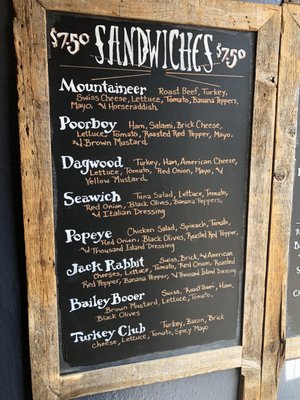 $7.50 SANDWICHES $7.50
Mountaineer Roast Beef, Turkey,
Swiss Cheese, Lettuce, Tomato, Banana Peppers,
Mayo, w/ Horseraddish
Poorboy Ham, Salami, Brick Cheese,
Lettuce, Tomato, Roasted Red Pepper, Mayo,
w/ Brown Mustard
Dagwood Turkey, Ham, American Cheese,
Lettuce, Tomato, Red Onion, Mayo, w/
Yellow Mustard
Seawich Tuna Salad, Lettuce, Tomato,
Red Onion, Black Olives, Banana Peppers,
w/ Italian Dressing
Popeye Chicken Salad, Spinach, Tomato,
Red Onion, Black Olives, Roasted Red Pepper,
w/ Thousand Island Dressing
Jack Rabbit Swiss, Brick w/ American
Cheeses, Lettuce, Tomato, Red Onion, Roasted
Red Pepper, Banana Pepper, w/ Thousand Island Dressing
Bailey Booer Swiss, Roast Beef, Ham,
Brown Mustard, Lettuce, Tomato,
Black Olives
Turkey Club Turkey, Bacon, Brick
Cheese, Lettuce, Tomato, Spicy Mayo